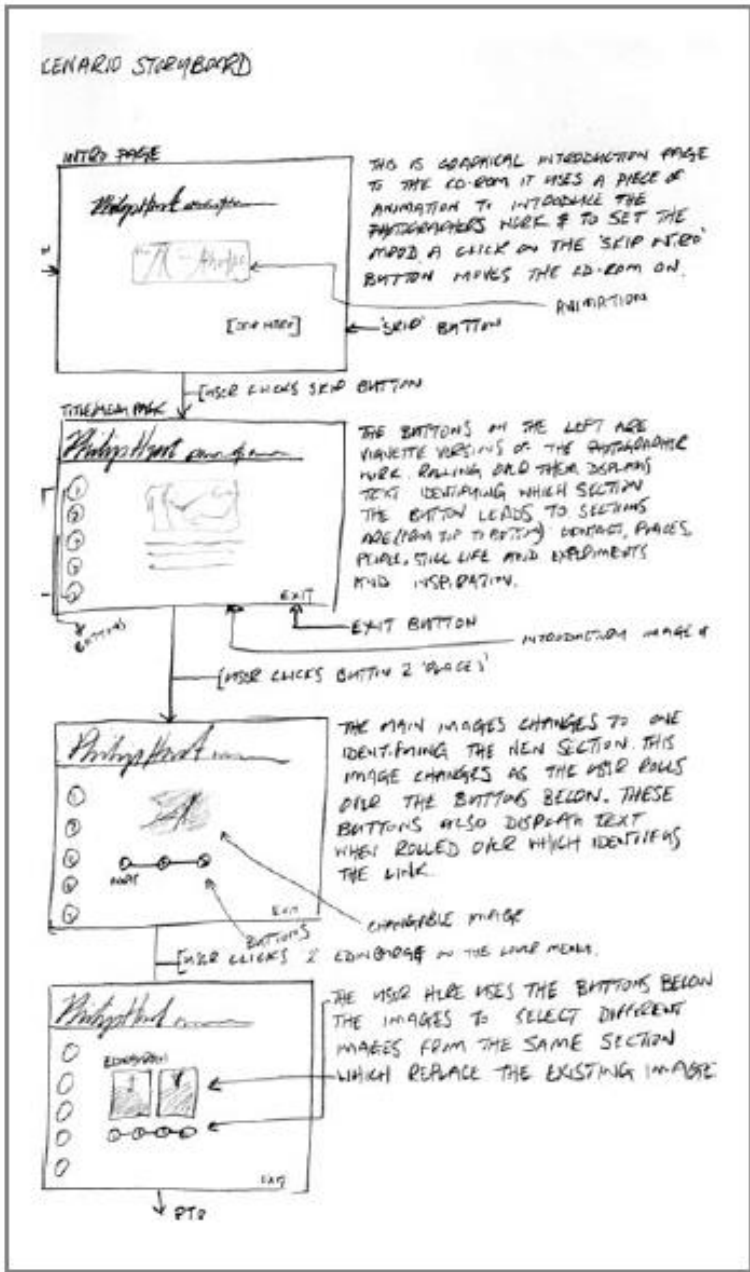 CENARIO STORYBOARD
INTRO PAGE
THIS IS GRAPHICAL INTRODUCTION PAGE
TO THE CD-ROM IT USES A PIECE OF
ANIMATION TO INTRODUCE THE
PHOTOGRAPHERS WORK & TO SET THE
MOOD. A CLICK ON THE 'SKIP INTRO'
BUTTON MOVES THE CD-ROM ON.
Philip Hunt
ANIMATION
[SKIP INTRO]
'SKIP' BUTTON
[USER CLICKS SKIP BUTTON
TITLE/MENU PAGE
Philip Hunt
THE BUTTONS ON THE LEFT ARE
VIGNETTE VERSIONS OF THE PHOTOGRAPHER
WORK. ROLLING OVER THEM DISPLAYS
TEXT IDENTIFYING WHICH SECTION
THE BUTTON LEADS TO SECTIONS
ARE (FROM TOP TO BOTTOM) CONTACT, PLACES,
PEOPLE, STILL LIFE AND EXPERIMENTS
AND INSPIRATION.
EXIT
BUTTONS
EXIT BUTTON
INTRODUCTION IMAGE &
[USER CLICKS BUTTON 2 'PLACES'
Philip Hunt
THE MAIN IMAGES CHANGES TO ONE
IDENTIFYING THE NEW SECTION. THIS
IMAGE CHANGES AS THE USER ROLLS
OVER THE BUTTONS BELOW. THESE
BUTTONS ALSO DISPLAY TEXT
WHEN ROLLED OVER WHICH IDENTIFIES
THE LINK.
EXIT
BUTTONS
CHANGABLE IMAGE
[USER CLICKS 2 ON THE LOWER MENU.
Philip Hunt
THE USER HERE USES THE BUTTONS BELOW
THE IMAGES TO SELECT DIFFERENT
IMAGES FROM THE SAME SECTION
WHICH REPLACE THE EXISTING IMAGE.
EDINBURGH
EXIT
PTO